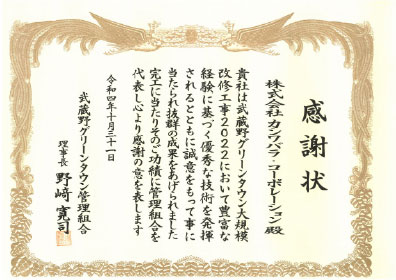 感謝状
株式会社カシワバラ・コーポレーション殿
貴社は武蔵野グリーンタウン大規模
改修工事2022において豊富な
経験に基づく優秀な技術を発揮
されるとともに誠意をもって事に
当たられ抜群の成果をあげられました
完工に当たりその功績に管理組合を
代表し心より感謝の意を表します
令和四年十月三十一日
武蔵野グリーンタウン管理組合
理事長 野﨑寛司